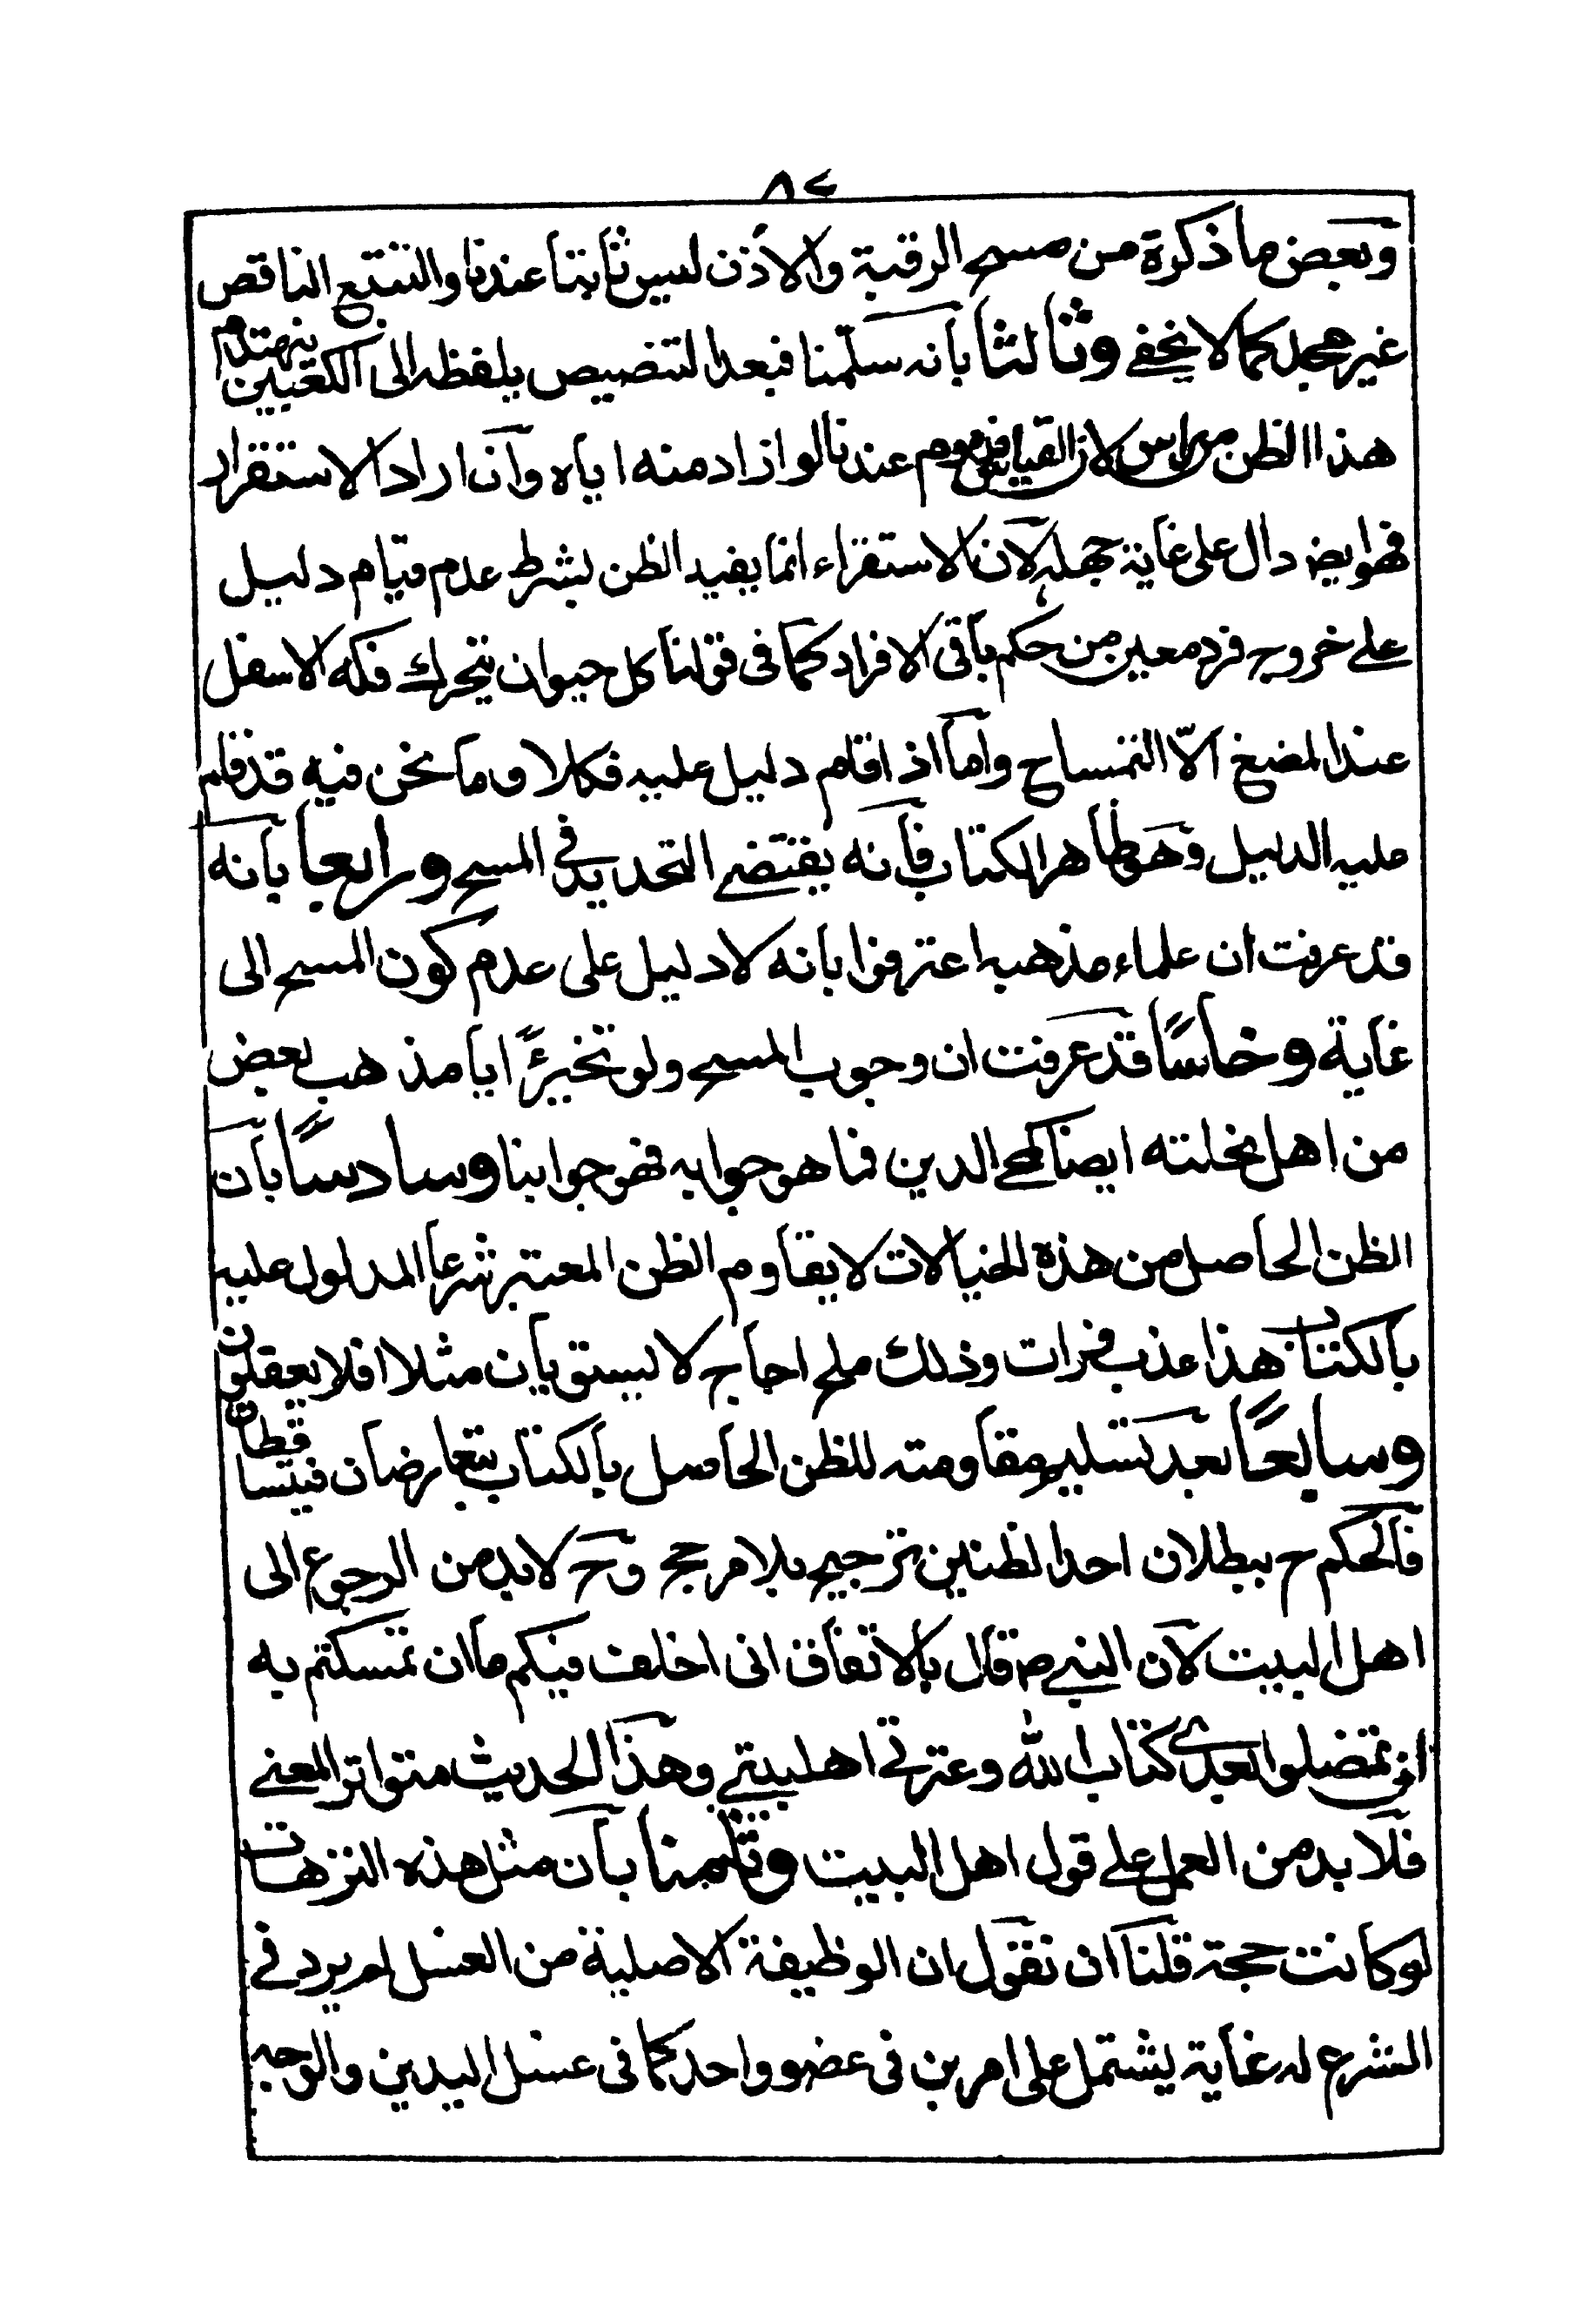 ٨٤
وبعض ما ذكرة من مسح الرقبة والاذن ليس ثابتا عندنا والتتبع الناقص
غير مجد كما لا يخفى وثالثا بانه سلّمنا فبعد التنصيص بلفظه الى الكعبين ينهدم
هذا الظن من راس لان القياس مذموم عندنا لو ازاد منه اياه وان اراد الاستقرار
فهو ايض دال على غاية جهله لان الاستقراء انما يفيد الظن بشرط عدم قيام دليل
على خروج فرد معين من حكم باقى الافراد كما فى قولنا كل حيوان يتحرك فكه الاسفل
عند المضغ الّا التمساح واما اذا قام دليل عليه فكلا وما نحن فيه قد قام
عليه الدليل وهو ظاهر الكتاب فانه يقتضى التحديد فى المسح ورابعا بانه
قد عرفت ان علماء مذهبه اعترفوا بانه لا دليل على عدم كون المسح الى
غاية وخامسًا قد عرفت ان وجوب المسح ولو تخييرًا ايا مذهب بعض
من اهل نحلته ايضا كمحى الدين فما هو جوابه فهو جوابنا وسادسًا بان
الظن الحاصل من هذه الخيالات لا يقاوم الظن المعتبر شرعا المدلول عليه
بالكتاب هذا عذب فرات وذلك ملح اجاج لا يستويان مثلا افلا يعقلون
وسابعًا بعد تسليم مقاومته للظن الحاصل بالكتاب يتعارضان فيتساقطان
فالحكم ح ببطلان احد الظنين ترجيح بلا مرجح وح لا بد من الرجوع الى
اهل البيت لان النبى ص قال بالاتفاق انى اخلف فيكم ما ان تمسكتم به
لن تضلوا بعدى كتاب الله وعترتى اهلبيتى وهذا الحديث متواتر المعنى
فلا بد من العمل على قول اهل البيت وثامنا بان مثل هذه الترهات
لو كانت حجة قلنا ان نقول ان الوظيفة الاصلية من الغسل لم يرد فى
الشرع له غاية يشتمل على امرين فى عضو واحد كما فى غسل اليدين والوجه